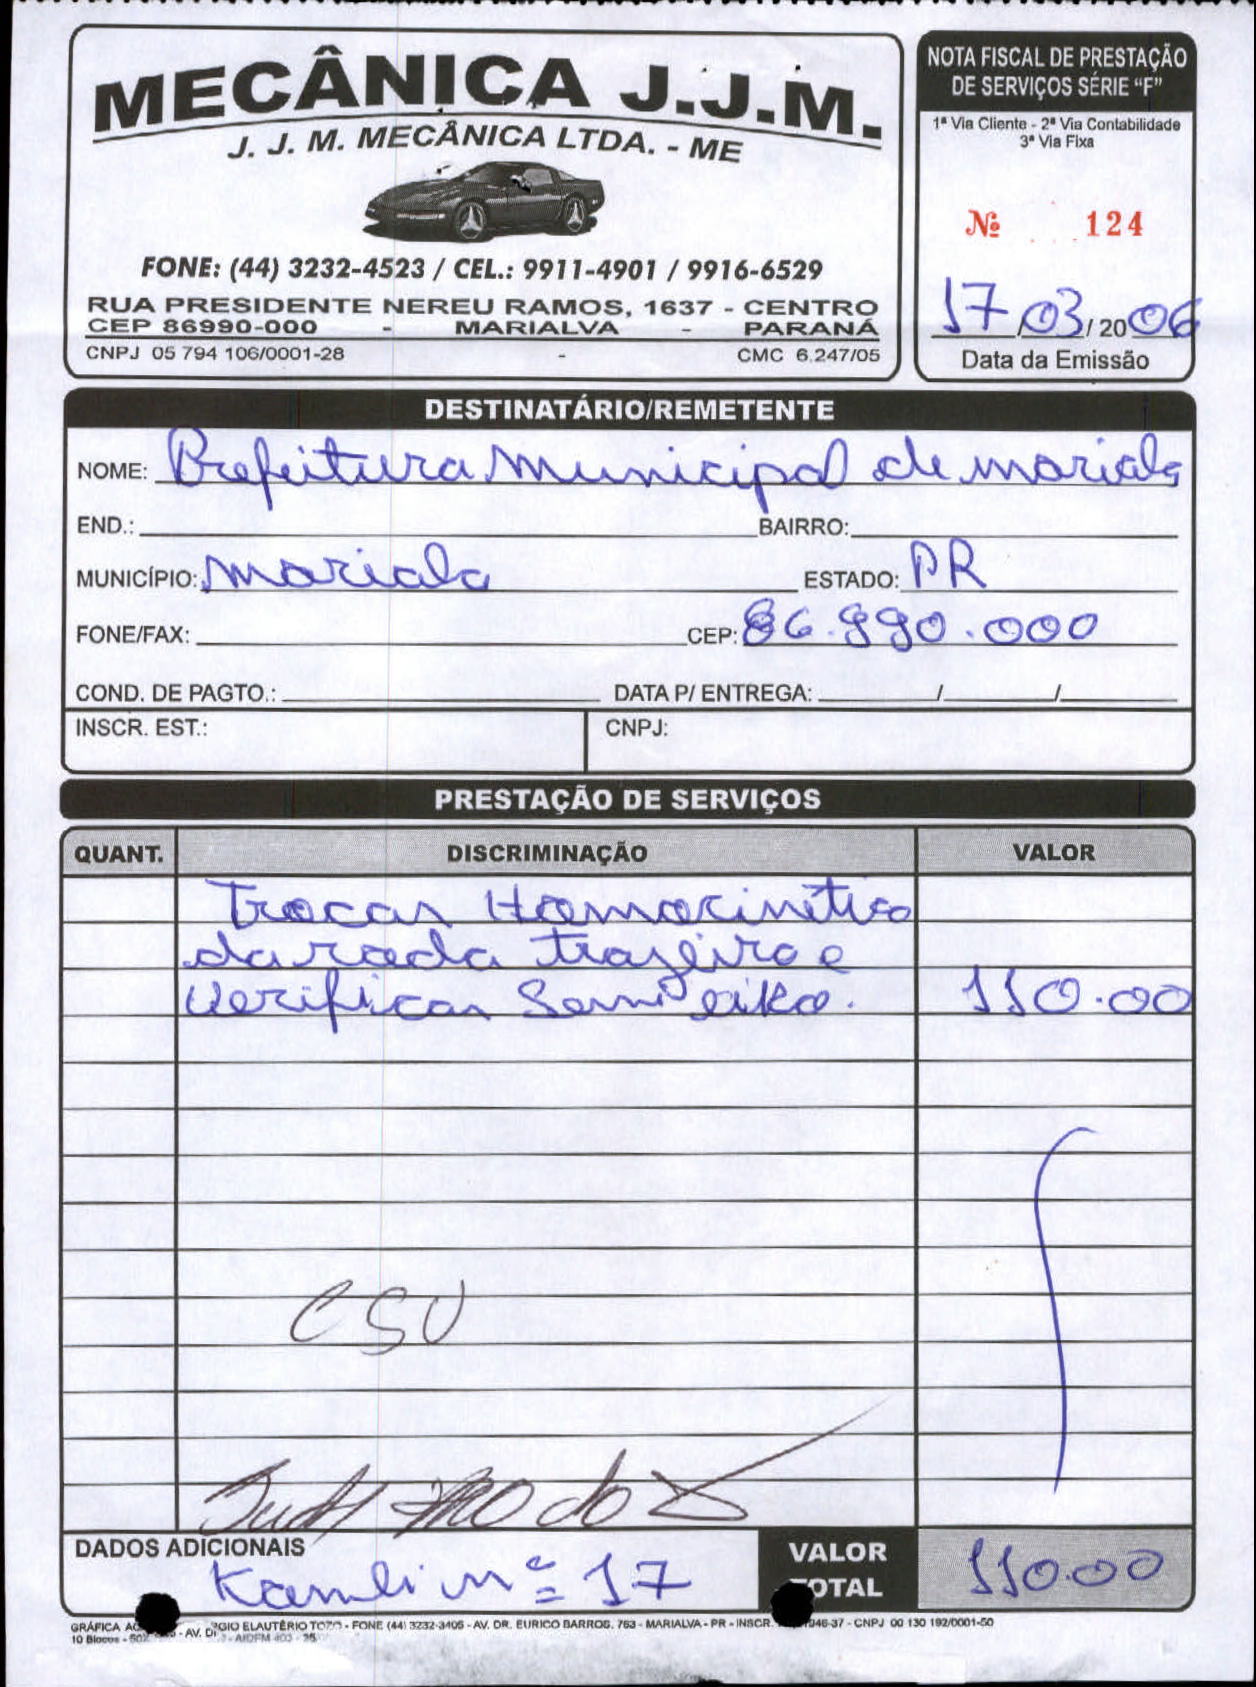 MECÂNICA J.J.M.
J. J. M. MECÂNICA LTDA. - ME
FONE: (44) 3232-4523 / CEL.: 9911-4901 / 9916-6529
RUA PRESIDENTE NEREU RAMOS, 1637 - CENTRO
CEP 86990-000 - MARIALVA - PARANÁ
CNPJ 05 794 106/0001-28 - CMC 6.247/05
NOTA FISCAL DE PRESTAÇÃO
DE SERVIÇOS SÉRIE “F”
1ª Via Cliente - 2ª Via Contabilidade
3ª Via Fixa
Nº 124
17/03/2006
Data da Emissão
DESTINATÁRIO/REMETENTE
NOME: Prefeitura Municipal de
END.: BAIRRO:
MUNICÍPIO: ESTADO: PR
FONE/FAX: CEP: 86.990.000
COND. DE PAGTO.: DATA P/ ENTREGA: / /
INSCR. EST.: CNPJ:
PRESTAÇÃO DE SERVIÇOS
QUANT. DISCRIMINAÇÃO VALOR
Trocar Homocinetica
da roda trazeira e
Verificar Semi eixo. 110.00
CSU
DADOS ADICIONAIS
nº 17
VALOR
TOTAL 110.00
ELAUTÉRIO - FONE (44) 3232-3405 - AV. DR. EURICO BARROS, 763 - MARIALVA - PR - INSCR. 946-37 - CNPJ 00 130 192/0001-50
10 Blocos - AIDFM 403